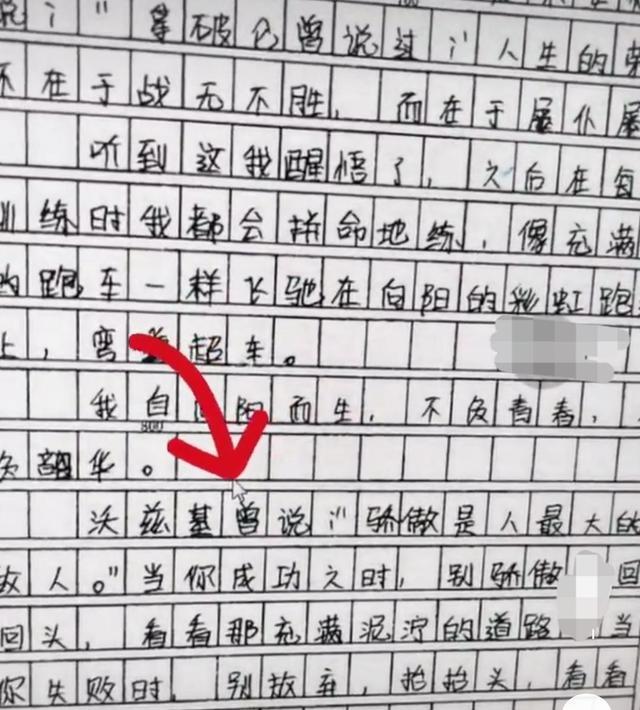 说："拿破仑曾说过："人生的荣
不在于战无不胜，而在于屡仆屡
听到这我醒悟了，之后在每
训练时我都会拼命地练，像充满
的跑车一样飞驰在向阳的彩虹跑
上，弯道超车。
我自向阳而生，不负青春，
800
负韶华。
沃兹基曾说："骄傲是人最大的
敌人。"当你成功之时，别骄傲 回
回头，看看那充满泥泞的道路 当
你失败时，别放弃，抬抬头，看看